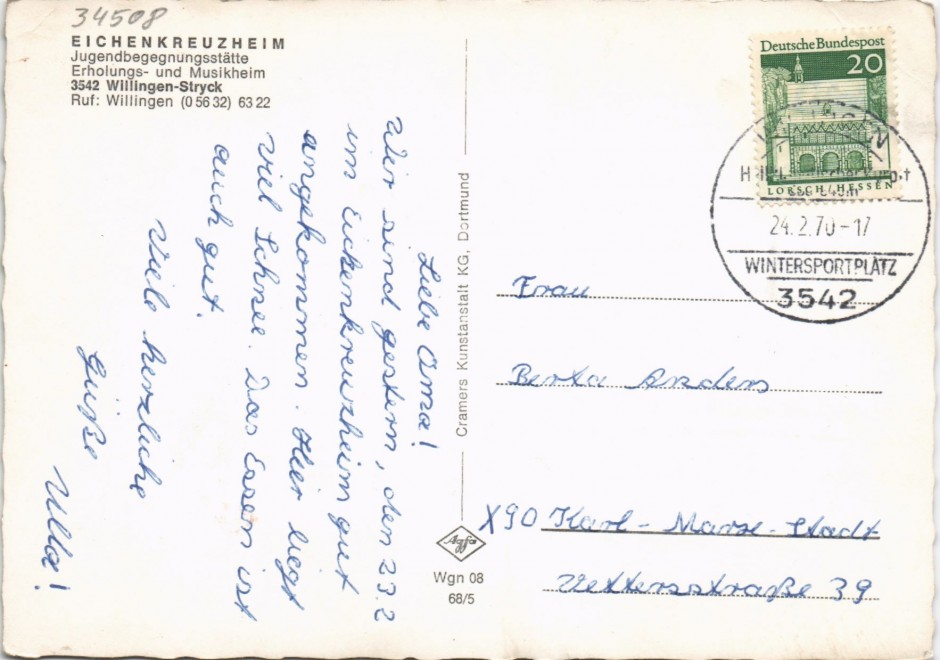 34508
EICHENKREUZHEIM
Jugendbegegnungsstätte
Erholungs- und Musikheim
3542 Willingen-Stryck
Ruf: Willingen (0 56 32) 63 22
Liebe Oma!
Wir sind gestern, den 23.2
im Eickenkreuzheim gut
angekommen. Hier liegt
viel Schnee. Das Essen ist
auch gut.
Viele herzliche
Grüße
Ulla!
Cramers Kunstanstalt KG, Dortmund
Agfa
Wgn 08
68/5
Deutsche Bundespost
20
LORSCH/HESSEN
24.2.70-17
WINTERSPORTPLATZ
3542
Frau
Berta Anders
X90 Karl-Marx-Stadt
Vettersstraße 39